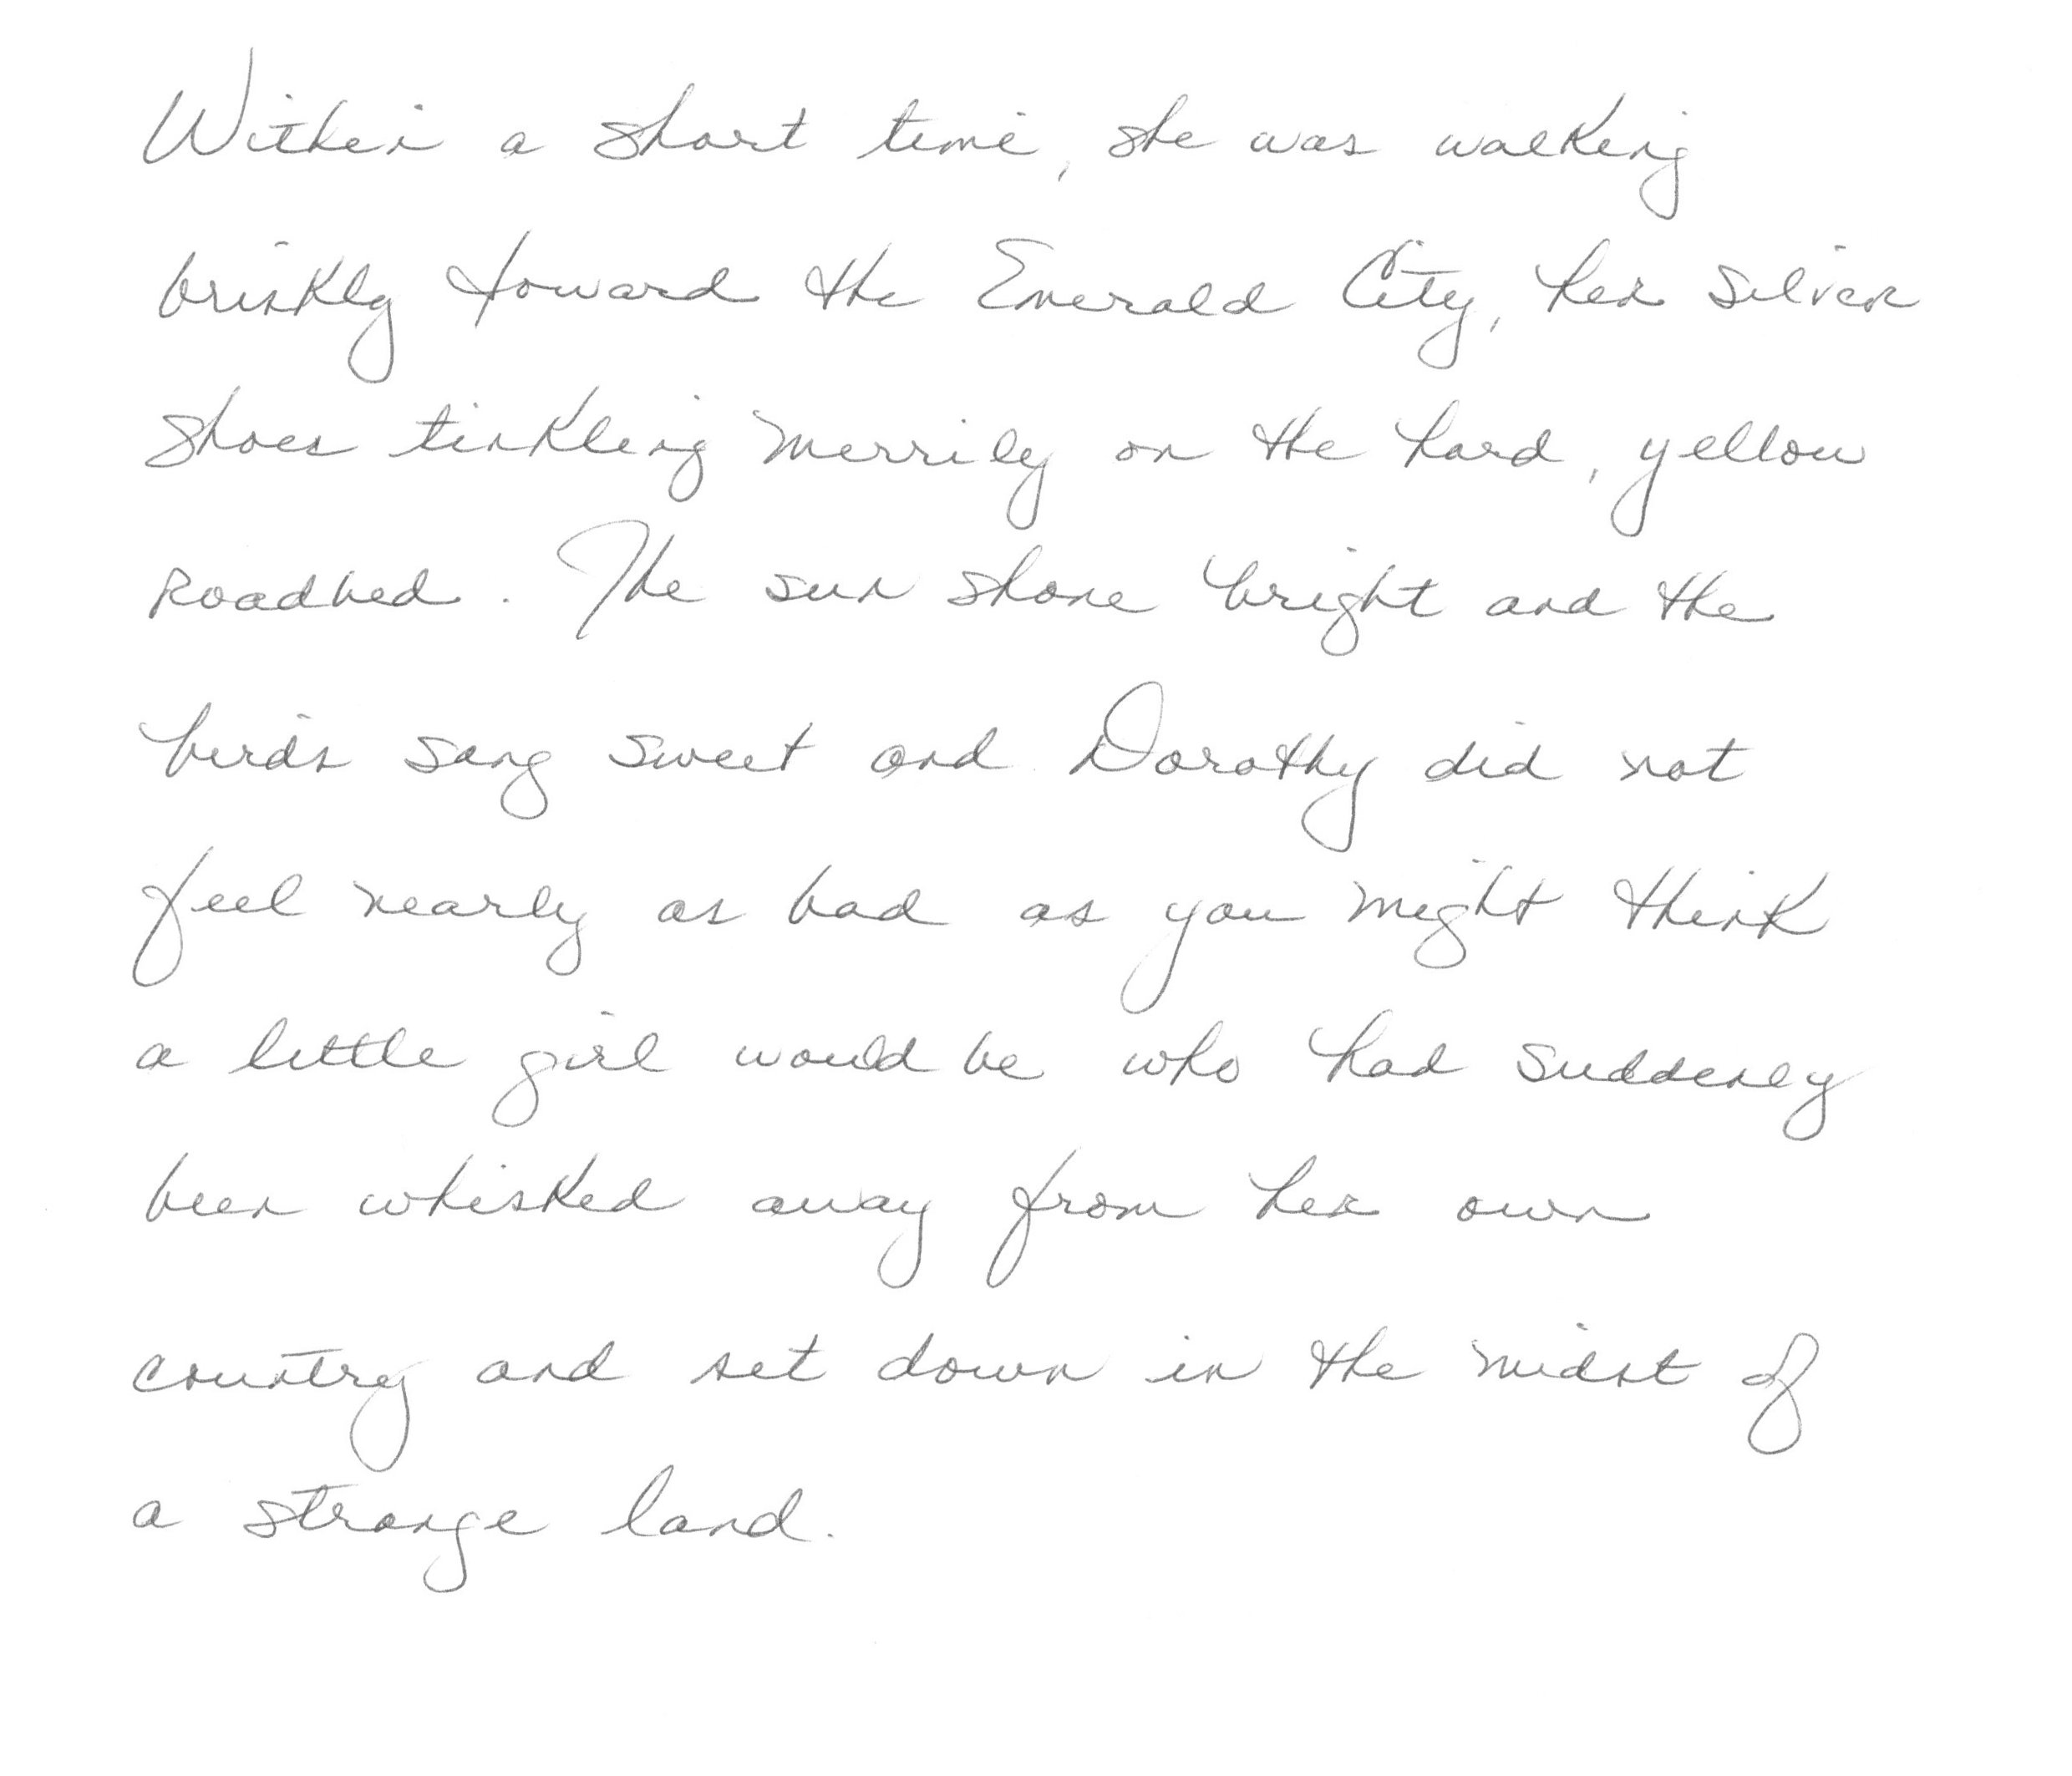 Within a short time, she was walking
briskly toward the Emerald City, her silver
shoes tinkling merrily on the hard, yellow
roadbed. The sun shone bright and the
birds sang sweet and Dorothy did not
feel nearly as bad as you might think
a little girl would be who had suddenly
been whisked away from her own
country and set down in the midst of
a strange land.